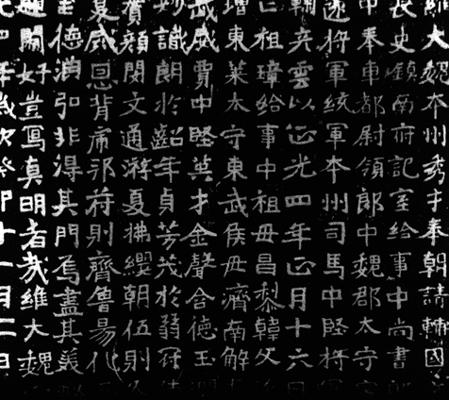 維大魏本州秀才奉朝請輔國
長史鎮南府記室給事中尚書郎
中奉車都尉領郎中魏郡太守
逐將軍統軍本州司馬中堅將
弈雲以正光四年正月十六日
祖璋給事中祖母昌黎韓父
增東萊太守東武侯母濟南解
武威賈中堅英才金聲合德玉潤
妙識朗於齠年貞芳茂於弱冠
賓顏閔文通游夏拂纓朝伍則
夏威恩背席邪苻則齊魯易化
至德淵弘非得其門焉盡其美
題闕好豈寫真明者哉維大魏
光四年歲次癸卯十一月二日